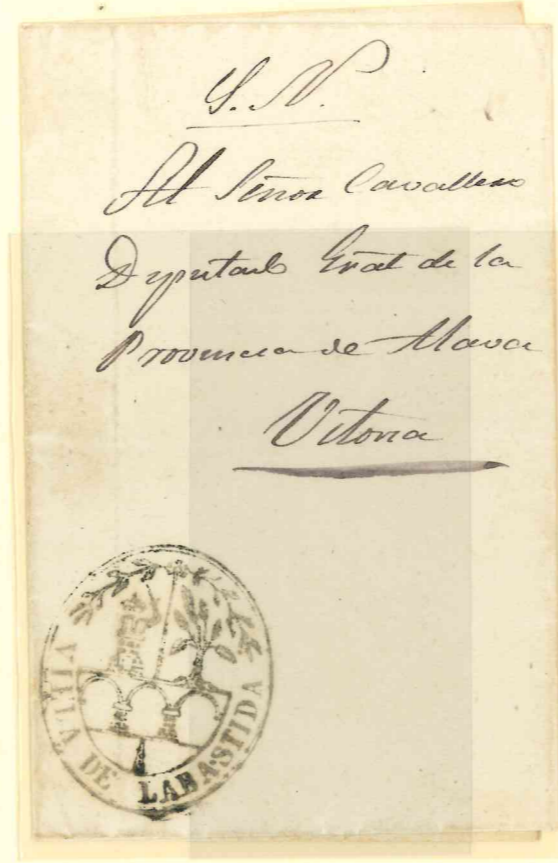 S. N.
Al Señor Cavallero
Diputado Gral de la
Provincia de Alava
Vitoria
VILLA DE LABASTIDA